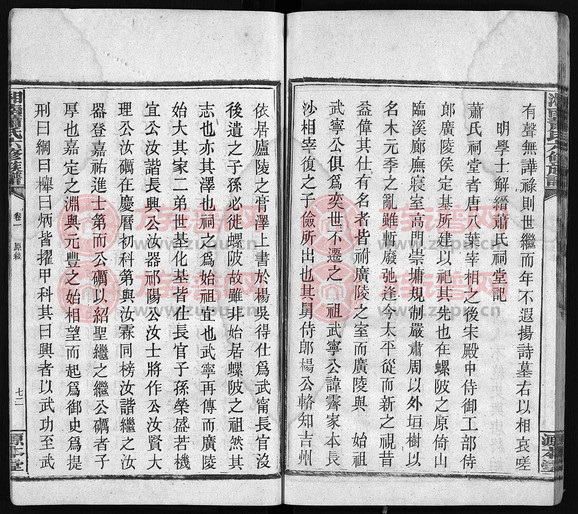 有聲無譁祿則世繼而年不遐揚詩墓右以相哀嗟
明學士解縉蕭氏祠堂記
蕭氏祠堂者唐八葉宰相之後宋殿中侍御工部侍
郎廣陵侯定基所建以祀其先也在螺陂之原倚山
臨溪廊廡寢室高埤崇墉規制嚴肅周以外垣樹以
名木元季之亂雖嘗戚弛逢今太平從而新之視昔
益偉其仕有名者皆祔廣陵之室而廣陵與　始祖
武寧公俱爲奕世不遷之　祖武寧公諱霽家本長
沙相宰復之子儉所出也其舅侍郎楊公輅知吉州
依居廬陵之官澤上書於楊吳得仕爲武甯長官沒
後遺之子孫必徒螺陂故雖非始居螺陂之祖然其
志也亦其澤也祠之爲始祖宜也武寧再傳而廣陵
始大其家二弟世基化基皆仕長官子孫榮盛若機
宜公汝諧長興公汝器祁陽公汝士將作公汝賢大
理公汝礪在慶曆初科第興汝霖同榜汝諧繼之汝
器登嘉祐進士第而公礪以紹聖繼之繼公礪者子
厚也嘉定之淵與元豐之始相望而起爲御史爲提
刑曰綱曰櫸曰炳皆擢甲科其曰興者以武功至武
卷一
原敘
七二